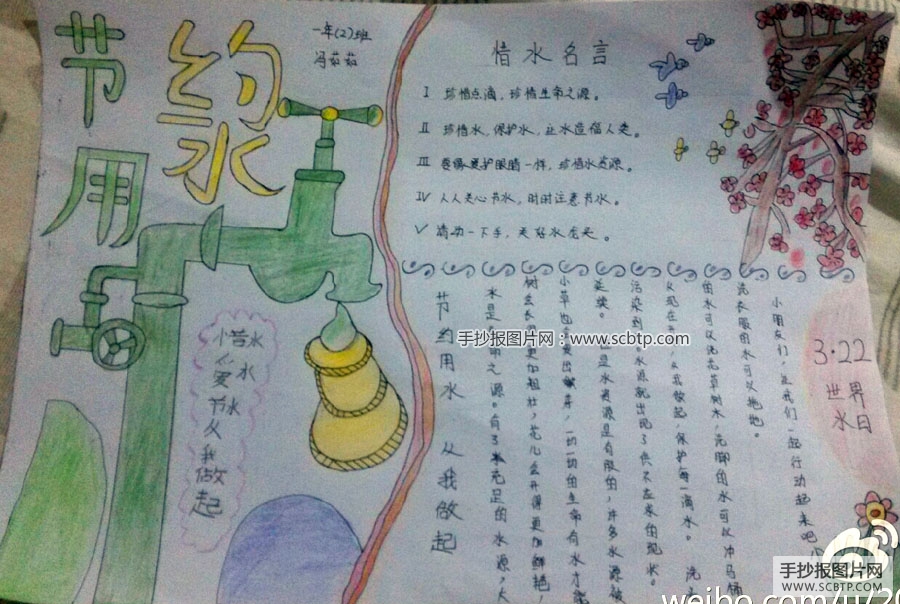 节约
用水
一年(2)班
冯茹茹
惜水名言
I 珍惜点滴，珍惜生命之源。
II 珍惜水，保护水，让水造福人类。
III 要像爱护眼睛一样，珍惜水资源。
IV 人人关心节水，时时注意节水。
V 请动一下手，关好水龙头。
节约用水 从我做起
水是
命之源。有了充足的水源，大
树会长
更加粗壮，花儿会开得更加鲜艳，
小草也
变出
，一切的生命有水才能
延续。
但是水资源是有限的，许多水源被
污染到
。水源就出现了供不应求的现状。
从现在
，从我做起，保护每一滴水。洗
的水可以浇花草树木，洗脚的水可以冲马桶
洗衣服的水可以拖地。
小朋友们，让我们一起行动起来吧
3·22
世界
水日
惜水
爱水
节水
从
我
做
起
手抄报图片网 www.scbtp.com
手抄报图片网
WWW.SCBTP.COM
weibo.com/u/20